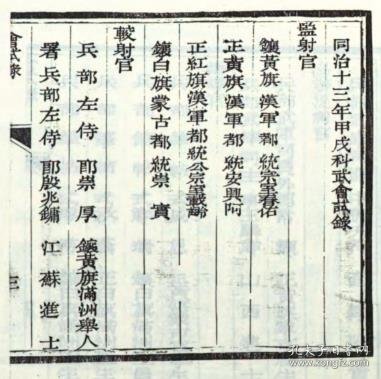 同治十三年甲戌科武會試錄
監射官
鑲黃旗漢軍都統宗室春佑
正黃旗漢軍都統安興阿
正紅旗漢軍都統公宗室載齡
鑲白旗蒙古都統崇實
較射官
兵部左侍郎崇厚 鑲黃旗滿洲舉人
署兵部左侍郎殷兆鏞 江蘇進士
會試錄
三
孔夫子旧书网
www.kongfz.com